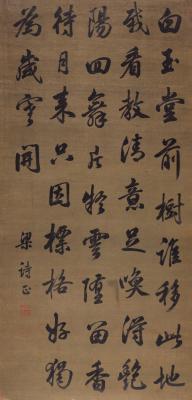 白玉堂前樹誰移此地
栽看教清意足喚得艷
陽回舞片疑雲墮留香
待月來只因標格好獨
為歲寒開
梁詩正